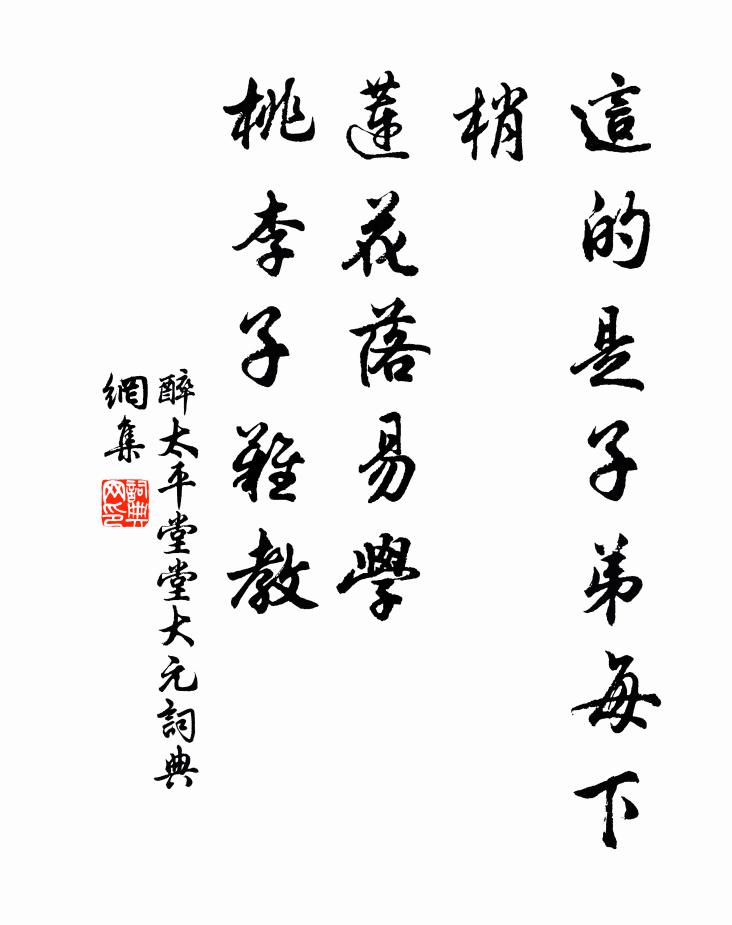 這的是子弟每下
梢
蓮花落易學
桃李子難教
醉太平堂堂大元詞典
網集
詞典
网印